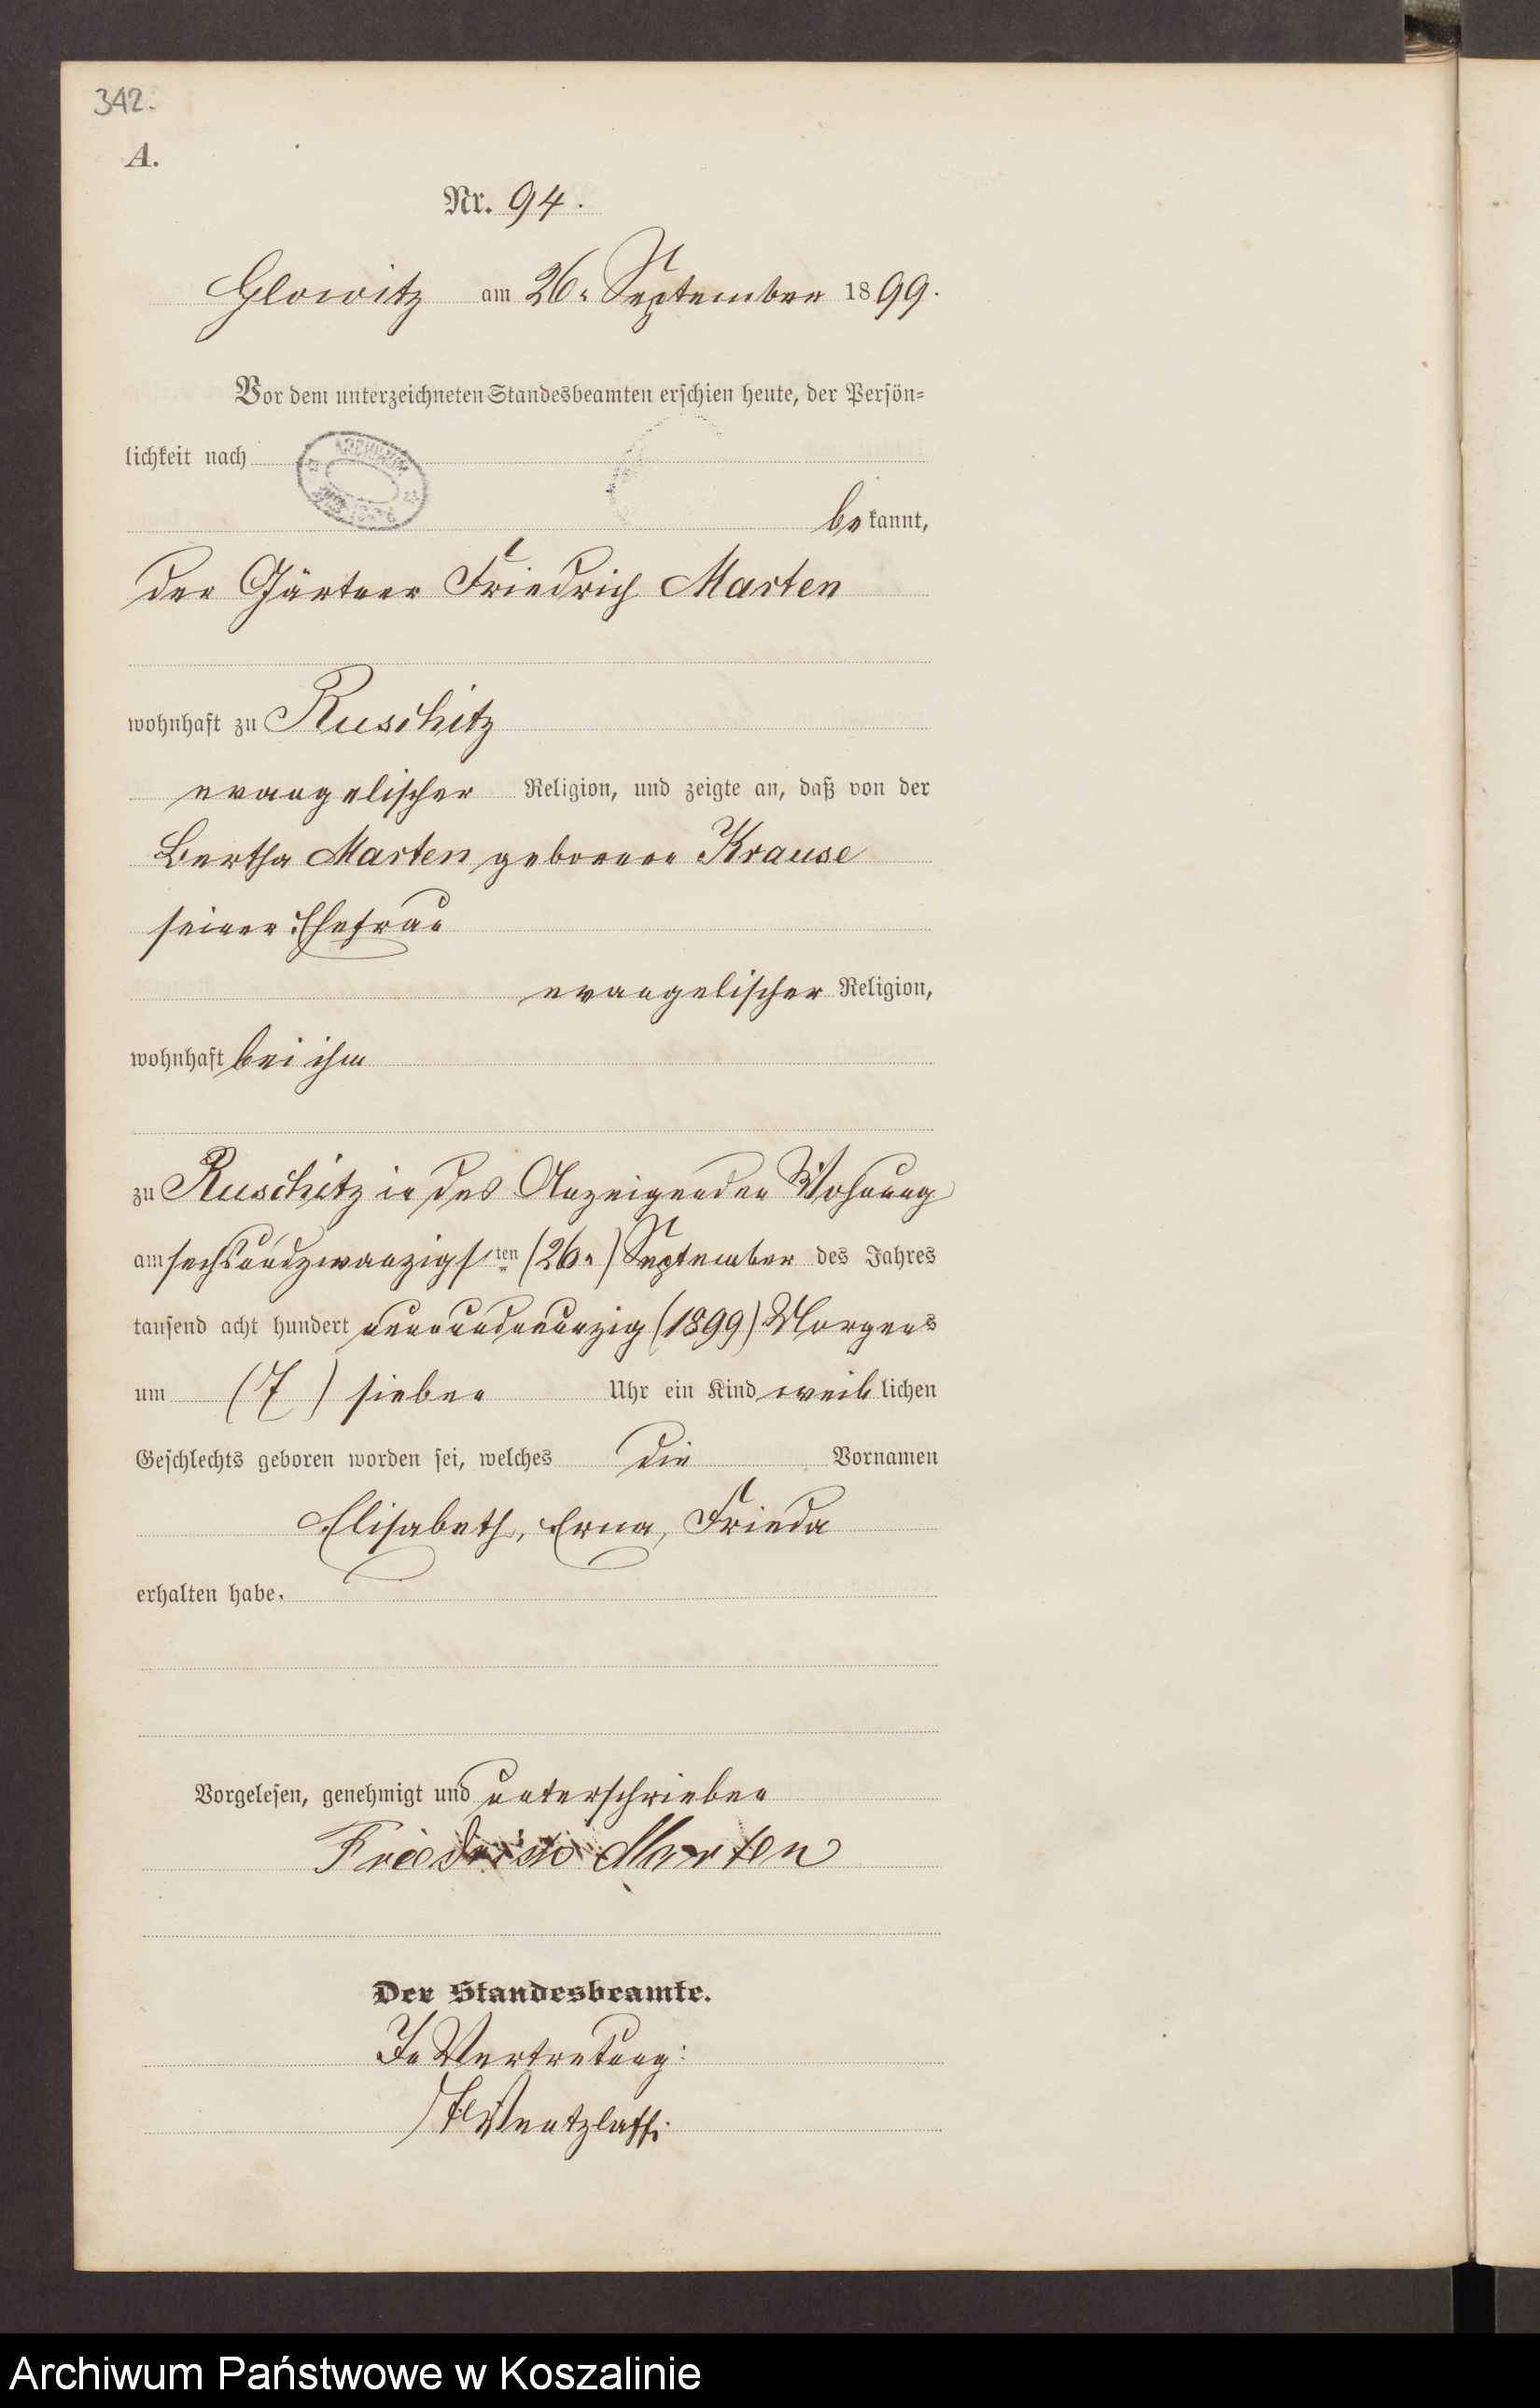 342.
A.
Nr. 94.
Glowitz am 26. September 1899.
Vor dem unterzeichneten Standesbeamten erschien heute, der Persön=
lichkeit nach
ARCHIWUM
bekannt,
der Gärtner Friedrich Marten
wohnhaft zu Ruschitz
evangelischer Religion, und zeigte an, daß von der
Bertha Marten geborenen Krause
seiner Ehefrau
evangelischer Religion,
wohnhaft bei ihm
zu Ruschitz in des Anzeigenden Wohnung
am sechsundzwanzigsten (26.) September des Jahres
tausend acht hundert neunundneunzig (1899) Morgens
um (7) sieben Uhr ein Kind weiblichen
Geschlechts geboren worden sei, welches die Vornamen
Elisabeth, Erna, Frieda
erhalten habe.
Vorgelesen, genehmigt und unterschrieben
Friedrich Marten
Der Standesbeamte.
In Vertretung:
Wentzlaff.
Archiwum Państwowe w Koszalinie